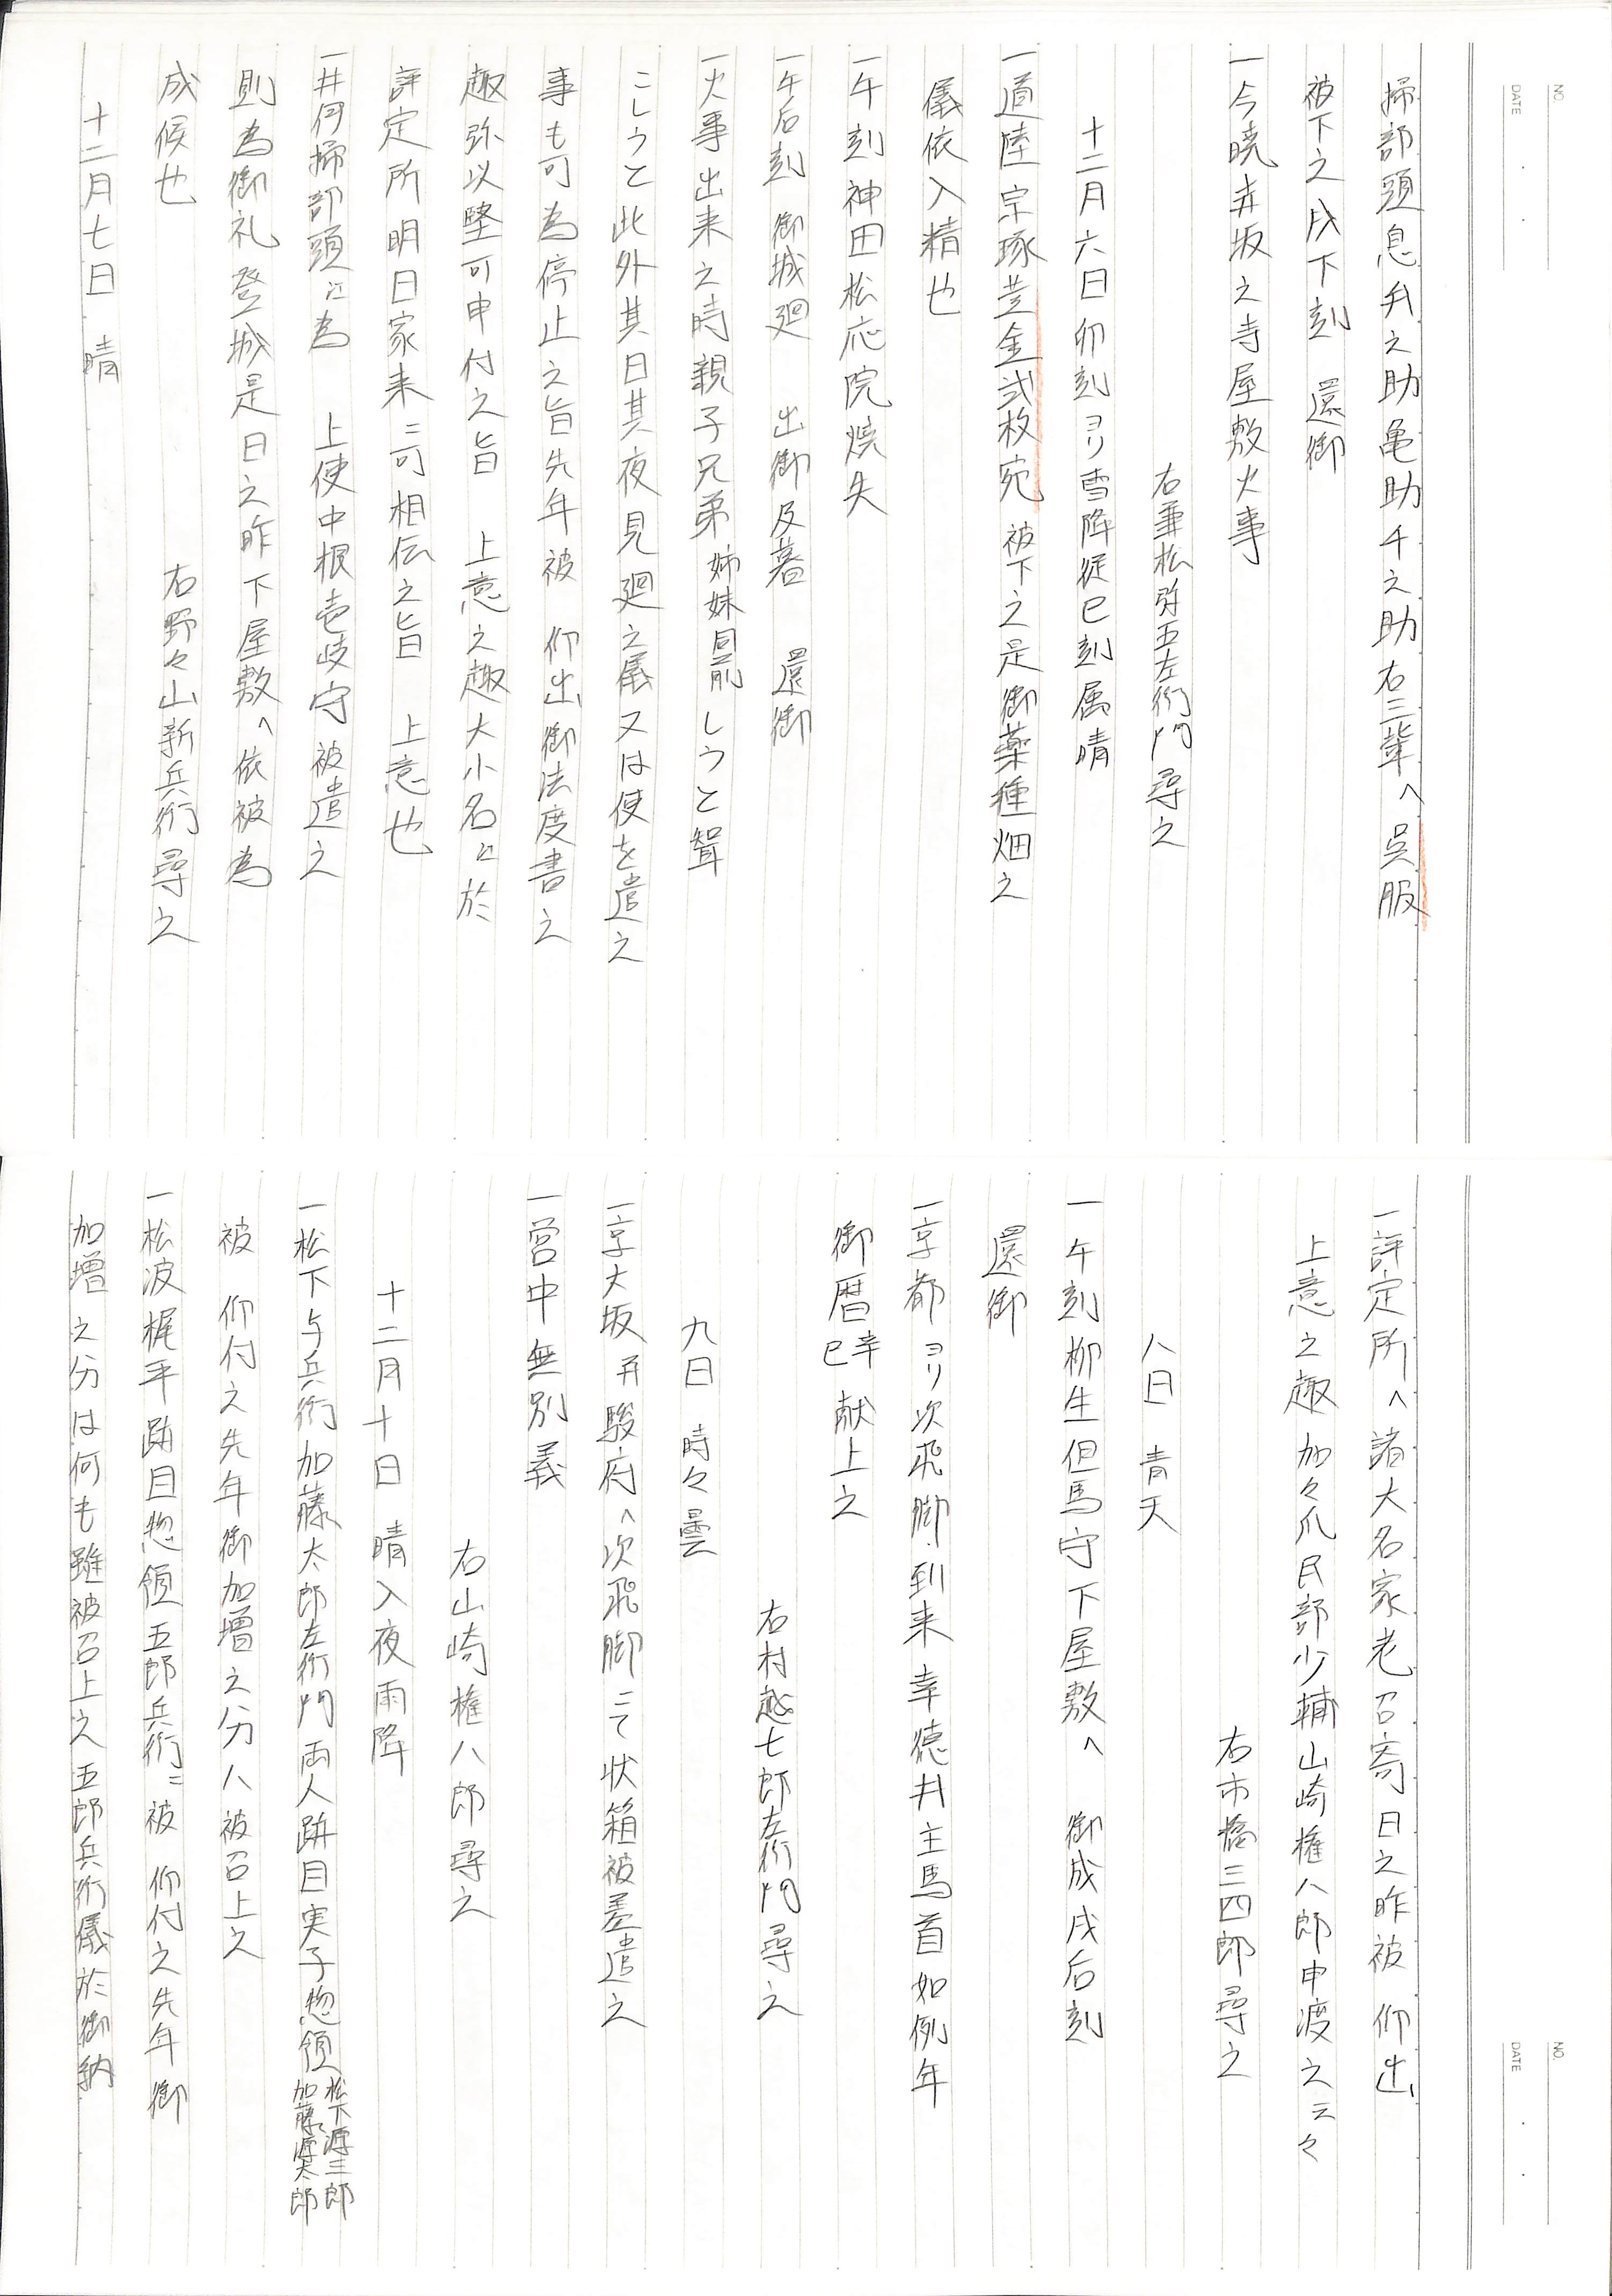 NO.
DATE
掃部頭息弁之助亀助千之助右三輩へ呉服
被下之戌下刻 還御
一今暁赤坂之寺屋敷火事
右兼松弥五左衛門尋之
十二月六日卯刻ヨリ雪降従巳刻属晴
一道陸宗琢芸金弐枚宛 被下之是御薬種畑之
儀依入精也
一午刻神田松応院焼失
一午后刻 御城廻 出御及暮 還御
一火事出来之時親子兄弟姉妹同前しうと聟
こしうと此外其日其夜見廻之儀又は使を遣之
事も可為停止之旨先年被 仰出御法度書之
趣弥以堅可申付之旨 上意之趣大小名ニ於
評定所明日家来ニ可相伝之旨 上意也
一井伊掃部頭ニ為 上使中根壱岐守被遣之
則為御礼登城是日之昨下屋敷へ依被為
成候也
右野々山新兵衛尋之
十二月七日 晴
NO.
DATE
一評定所へ諸大名家老召寄日之昨被 仰出
上意之趣加々爪民部少輔山崎権八郎申渡之云々
右市橋三四郎尋之
八日 青天
一午刻柳生但馬守下屋敷へ 御成戌后刻
還御
一京都ヨリ次飛脚到来幸徳井主馬首如例年
御暦辛巳献上之
右村越七郎左衛門尋之
九日 時々曇
一京大坂并駿府へ次飛脚ニて状箱被差遣之
一営中無別義
右山崎権八郎尋之
十二月十日 晴入夜雨降
一松下与兵衛加藤太郎左衛門両人跡目実子惣領松下源三郎加藤源太郎
被 仰付之先年御加増之分ハ被召上之
一松波梶平跡目惣領五郎兵衛ニ被 仰付之先年御
加増之分は何も雖被召上之五郎兵衛儀於御納